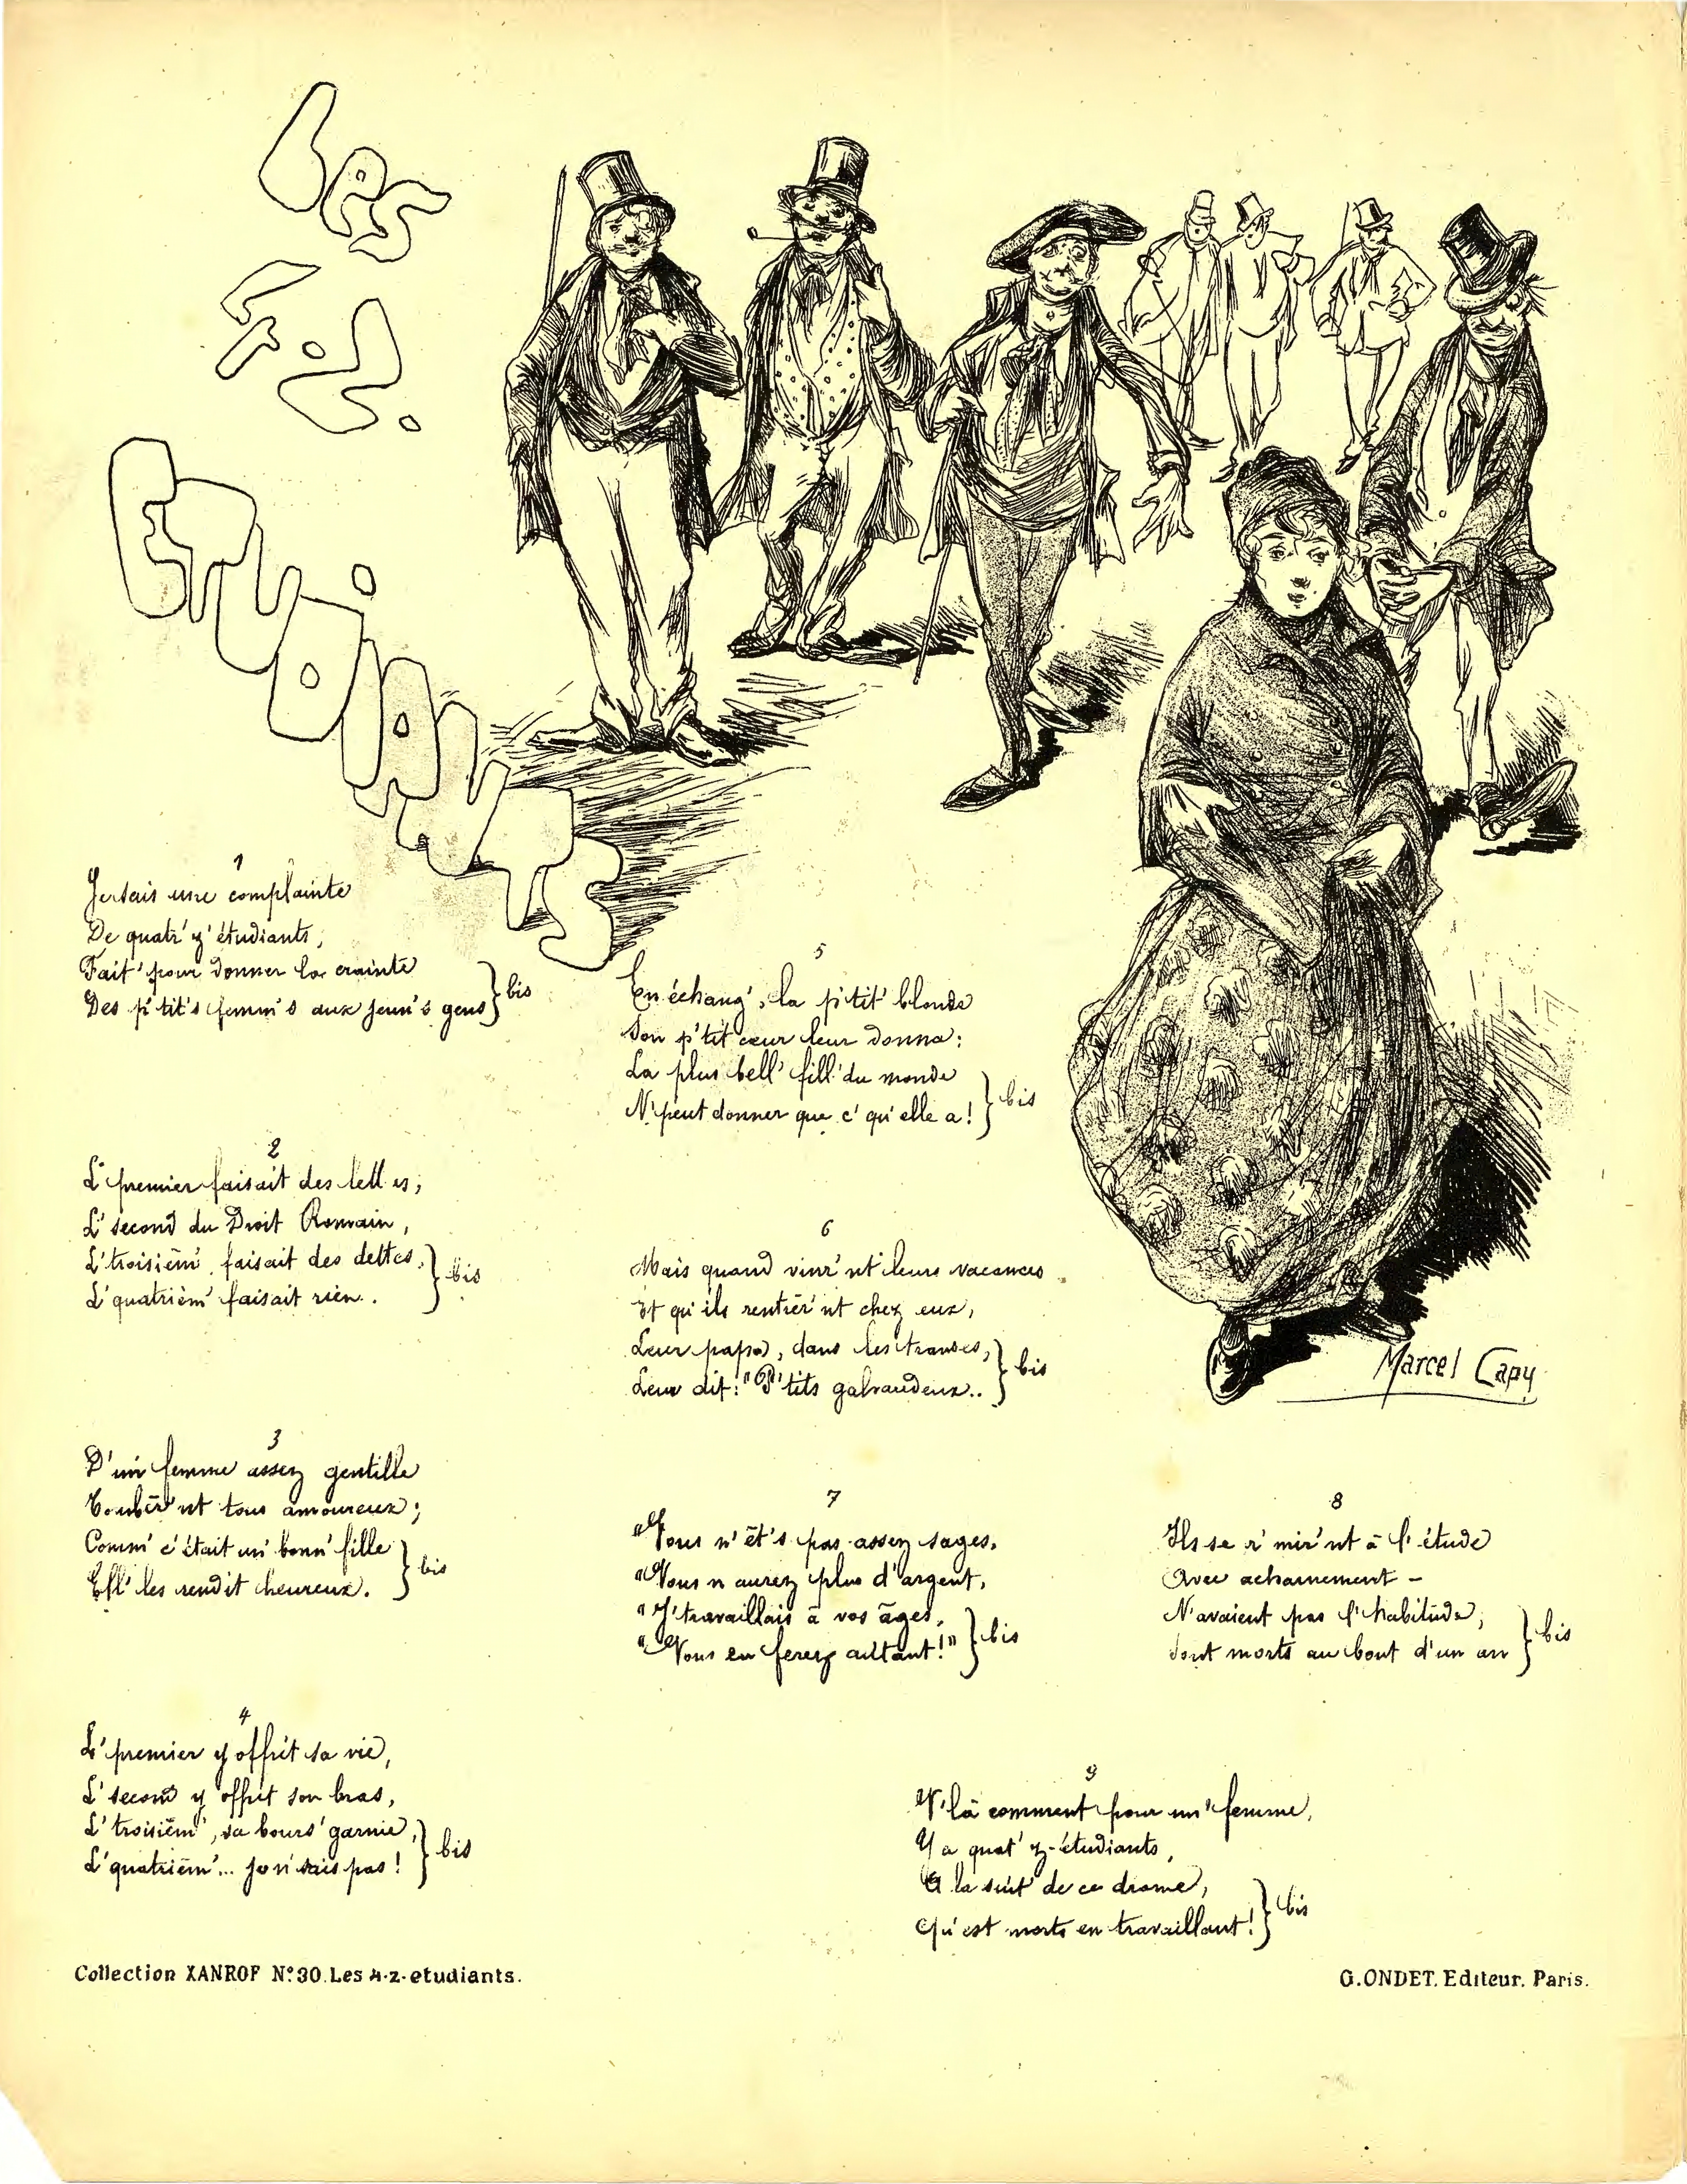 Les
4.z.
Etudiants
1
Je sais une complainte
De quatr' z' étudiants,
Fait' pour donner la crainte
Des p'tit's femm's aux jeun's gens } bis
2
L' premier faisait des lettres;
L' second du Droit Romain,
L' troisièm' faisait des dettes,
L' quatrièm' faisait rien.. } bis
3
D'un' femme assez gentille
Tombèr'nt tous amoureux;
Comm' c'était un' bonn' fille
Ell' les rendit heureux. } bis
4
L' premier y offrit sa vie,
L' second y offrit son bras,
L' troisièm', sa bours' garnie,
L' quatrièm'... je n' sais pas! } bis
5
En échang', la p'tit' blonde
Son p'tit cœur leur donna:
La plus bell' fill' du monde
N' peut donner que c' qu'elle a! } bis
6
Mais quand vinr'nt leurs vacances
Et qu'ils rentrèr'nt chez eux,
Leur papa, dans les transes,
Leur dit: "P'tits galvaudeux.. } bis
7
"Vous n' êt's pas assez sages,
"Vous n'aurez plus d'argent,
"J' travaillais à vos âges,
"Vous en ferez autant!" } bis
8
Ils se r'mir'nt à l'étude
Avec acharnement -
N'avaient pas l'habitude;
Sont morts au bout d'un an } bis
9
V'là comment pour un' femme,
Y a quat' z-étudiants,
A la suit' de ce drame,
Qu'est morts en travaillant! } bis
Marcel Capy
Collection XANROF N° 30. Les 4-z-etudiants.
G. ONDET. Editeur. Paris.